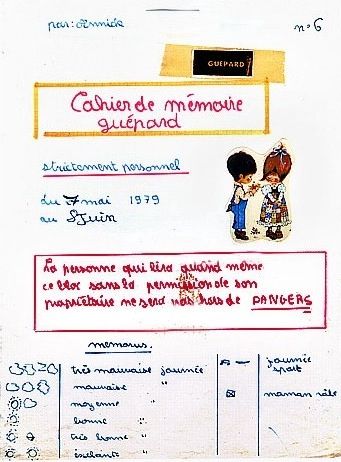 par: Annick
n° 6
GUEPARD
Cahier de mémoire
guépard
strictement personnel
du 7 mai 1979
au 8 Juin
La personne qui lira quand même
ce bloc sans la permission de son
propriétaire ne sera pas hors de DANGERS
memorus.
très mauvaise journée
mauvaise "
moyenne "
bonne "
très bonne "
journée
sport
maman râle